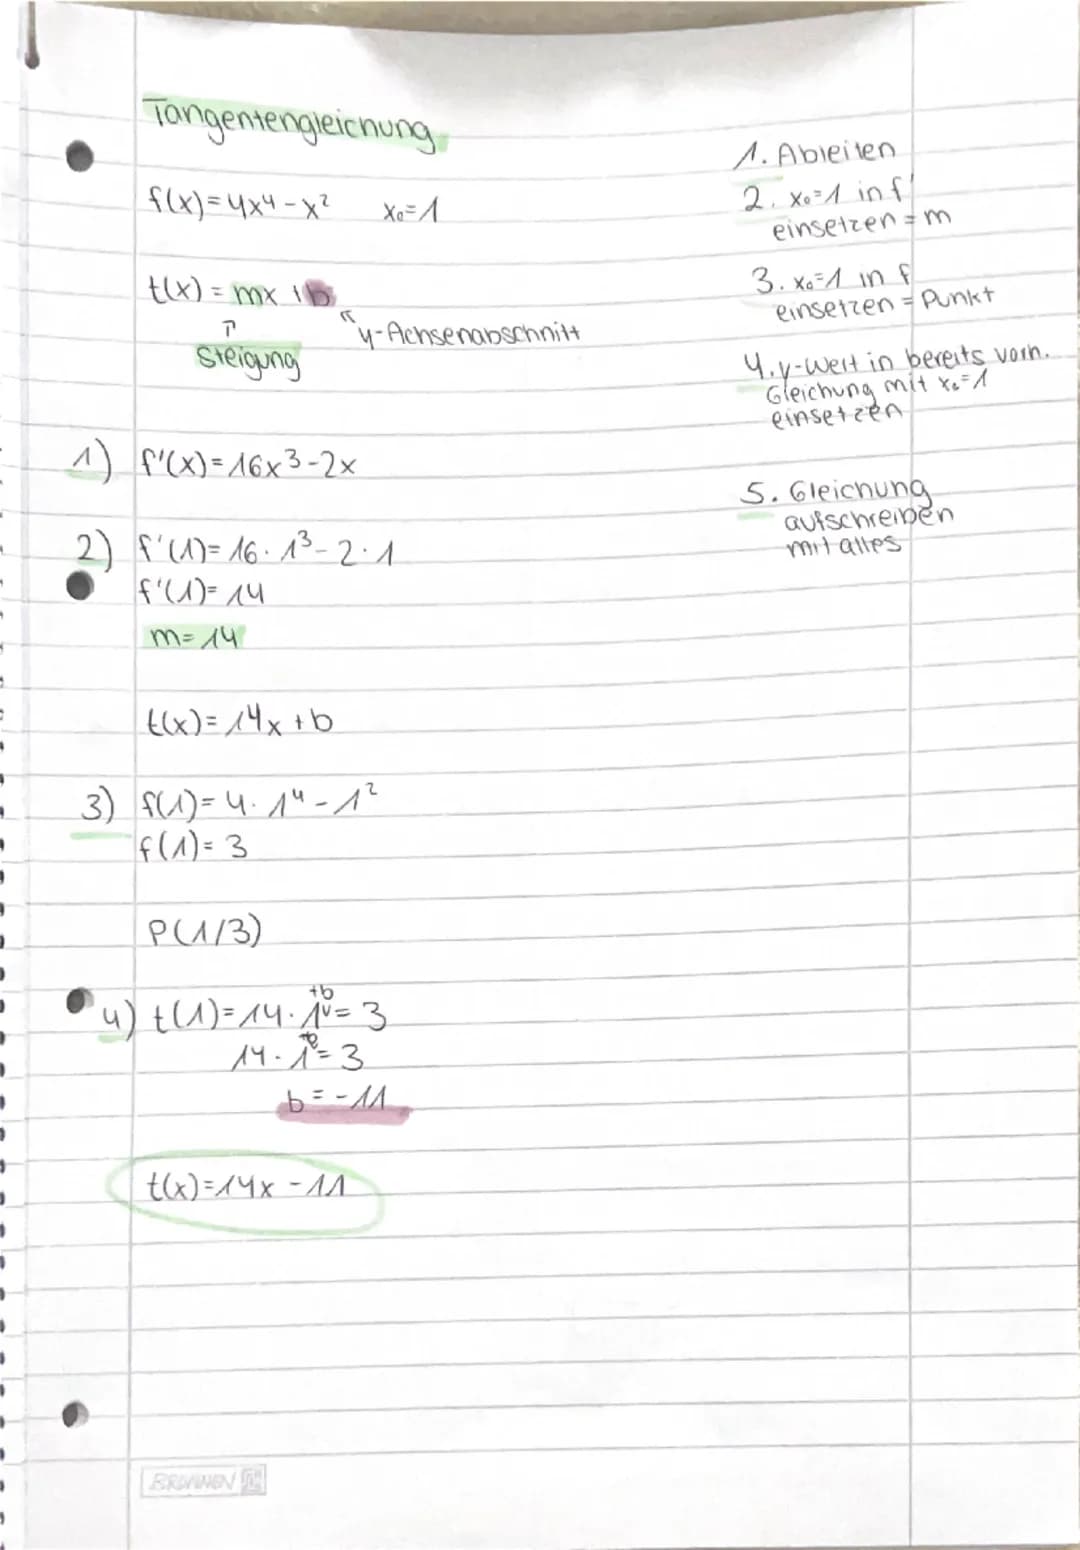 Tangentengleichung
f(x)=4x⁴-x² x₀=1
t(x) = mx + b
↑
Steigung
↖ y-Achsenabschnitt
1) f'(x)=16x³-2x
2) f'(1)=16·1³-2·1
f'(1)=14
m=14
t(x)=14x+b
3) f(1)=4·1⁴-1²
f(1)=3
P(1/3)
4) t(1)=14·1+b=3
14·1+b=3
b=-11
t(x)=14x-11
1. Ableiten
2. x₀=1 in f'
einsetzen = m
3. x₀=1 in f
einsetzen = Punkt
4. y-Wert in bereits vorh.
Gleichung mit x₀=1
einsetzen
5. Gleichung
aufschreiben
mit alles
BRUNNEN